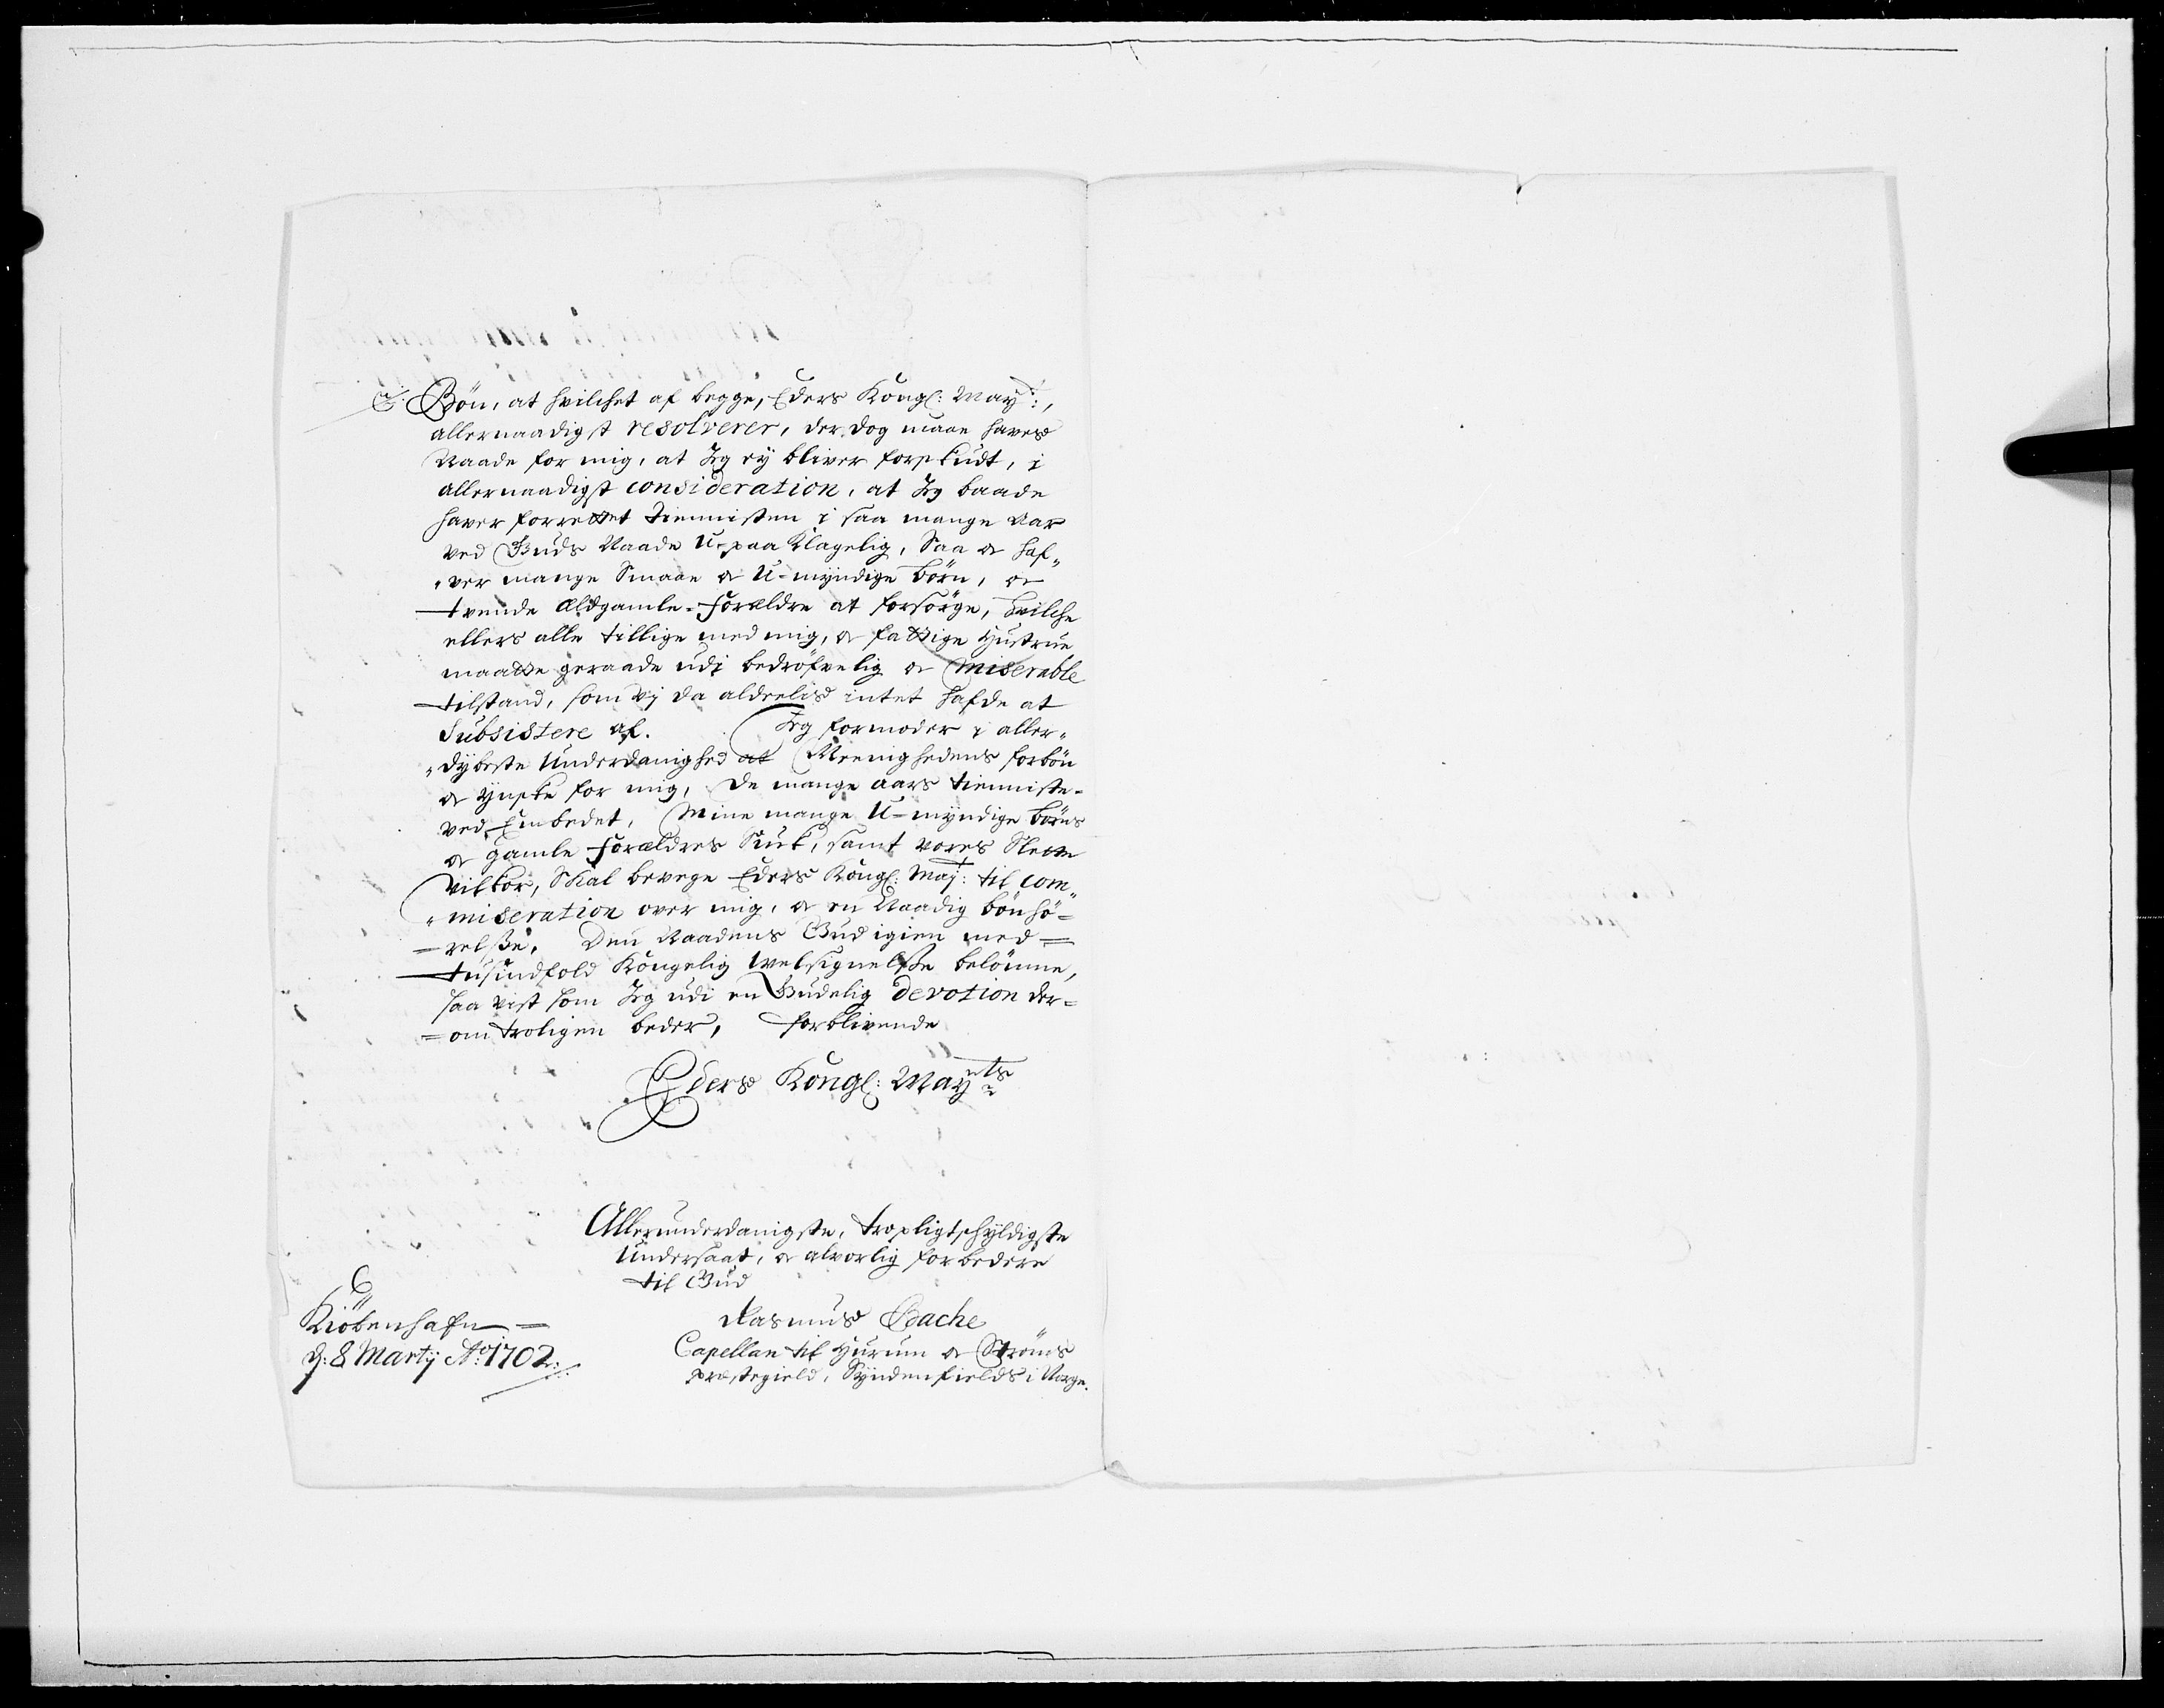 Bön, at hvilchet af begge, Eders Kongl: May:,
allernaadigst resolverer, der dog maae haves
Naade for mig, at Jeg ey bliver forskudt, i
allernaadigst consideration, at Jeg baade
haver forrettet tiennisten i saa mange Aar
ved Guds Naade U-paa Klagelig, Saa og haf„
„ver mange Smaae og U-myndige börn, og
tvende Ældgamle-Forældre at forsörge, hvilche
ellers alle tillige med mig, og fattige Hustrue
maatte geraade udi bedröfvelig og miserable
tilstand, som vj da aldeelis intet hafde at
Subsistere af. Jeg formoder i aller„
„dybeste Underdanighed at Meenighedens forbön
og Ynske for mig, De mange aars tienniste-
ved Embedet, Mine mange U-myndige börns
og gamle Forældres Suk, samt vores Slette
vilkor, Skal bevege Eders Kongl: Maj: til com„
„miseration over mig, og en Naadig bönhö=
=relsße, Den Naadens Gud igien med=
tusindfold Kongelig Welsignelsße belönne,
saa vist som Jeg udi en Gudelig devotion der=
=om troligen beder, forblivende
Eders Kongl: Mayts
Allerunderdanigste, tropligtschyldigste
Undersaat, og alvorlig forbedere
til Gud
Kiöbenhafn=
d: 8 Martij Ao: 1702.
Rasmus Bache
Capellan til Hurum og Ströms
præstegield, Syndenfields i Norge.